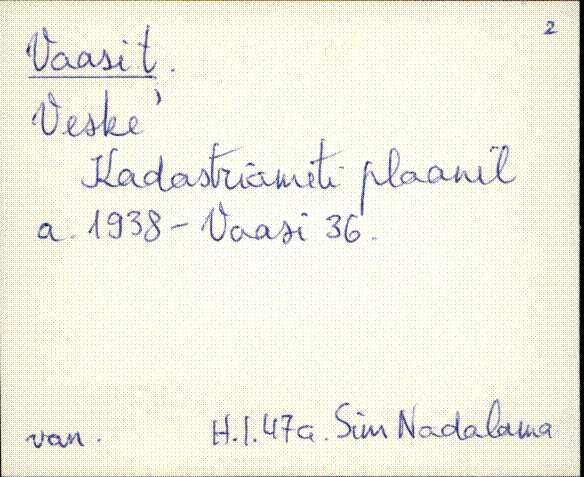 2
Vaasi t.
Veske'
Kadastriameti plaanil
a. 1938 - Vaasi 36.
van. H.I.47a. Sim Nadalama